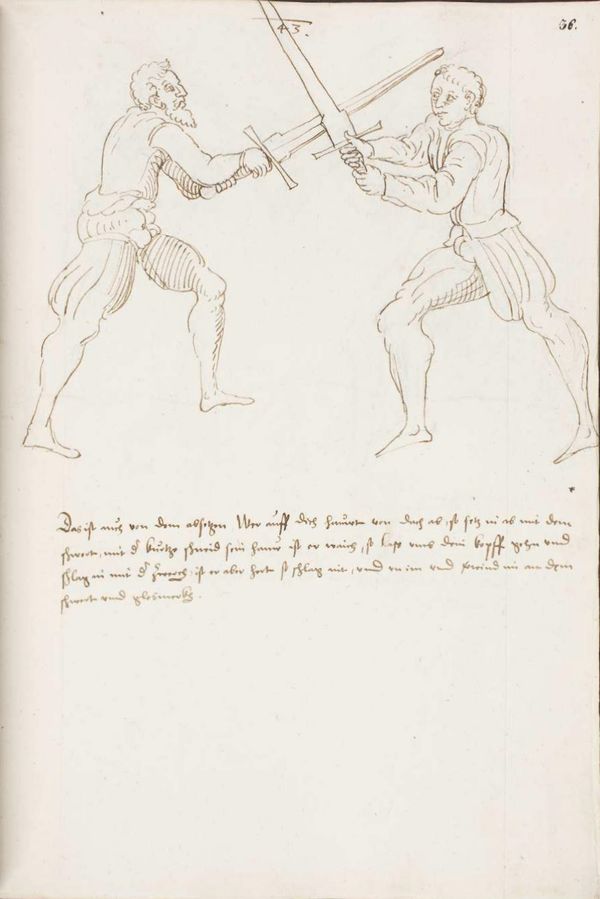 43.
36.
Das ist auch von dem absetzen Wer auff dich hauwt von dach ab, so setz in ab mit dem
schwert, mit d' kurtze schneid sein hauw ist er waich, so lass umb dein kopff gehn und
schlag in mit d' ist er aber hert so schlag nit, und in und wind im an dem
schwert und